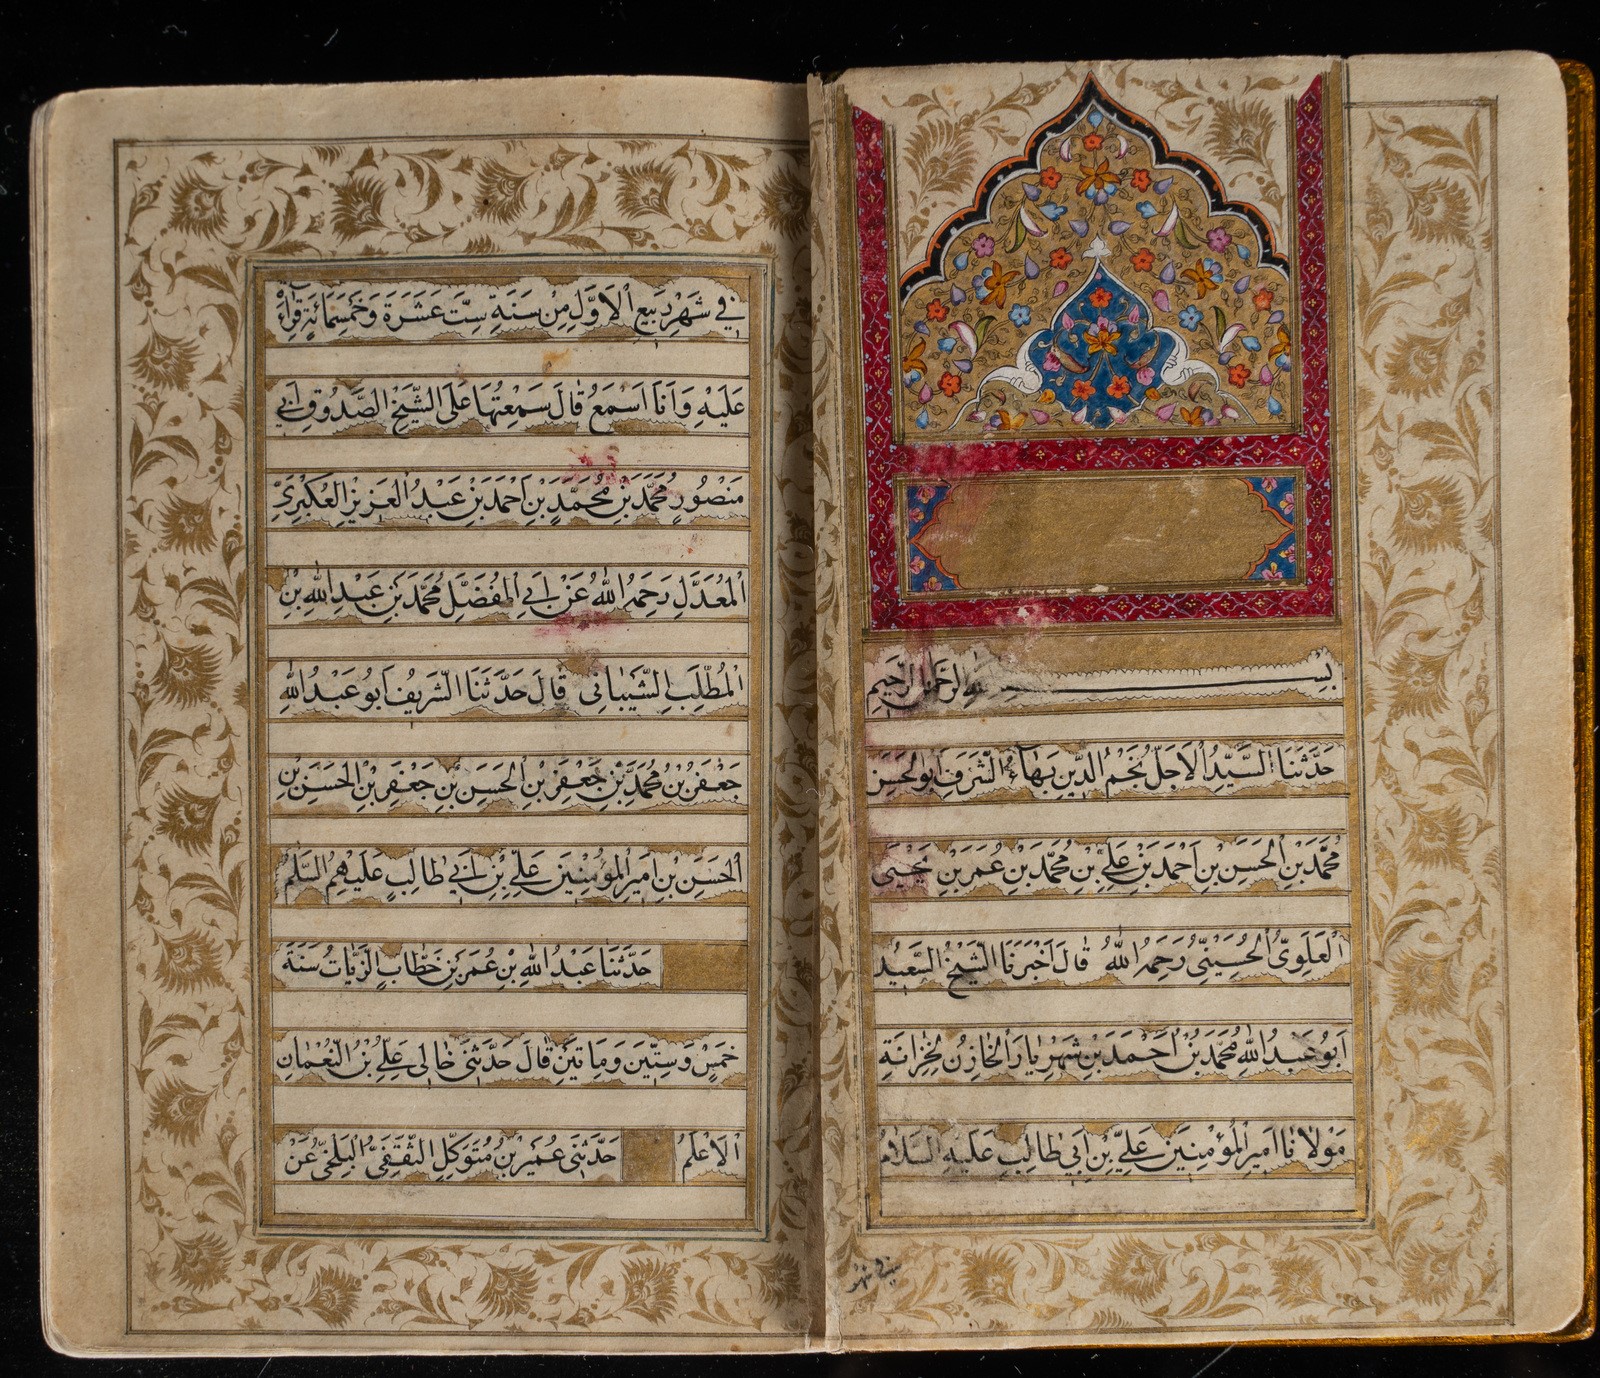 بسم الله الرحمن الرحيم
حَدَّثَنَا السَّيِّدُ الْاَجَلُّ نَجْمُ الدّينِ بَهَاءُ الشَّرَفِ اَبُو الْحَسَنِ
مُحَمَّدُ بْنُ الْحَسَنِ بْنِ اَحْمَدَ بْنِ عَلِيِّ بْنِ مُحَمَّدِ بْنِ عُمَرَ بْنِ يَحْيَى
الْعَلَوِىُّ الْحُسَيْنِىُّ رَحِمَهُ اللّٰهُ قَالَ اَخْبَرَنَا الشَّيْخُ السَّعِيدُ
اَبُو عَبْدِ اللّٰهِ مُحَمَّدُ بْنُ اَحْمَدَ بْنِ شَهْرِيَارَ الْخَازِنُ لِخِزَانَةِ
مَوْلَانَا اَمِيرِ الْمُؤْمِنِينَ عَلِيِّ بْنِ اَبِي طَالِبٍ عَلَيْهِ السَّلَامُ
في شهر
فِي شَهْرِ رَبِيعِ الْاَوَّلِ مِنْ سَنَةِ سِتَّ عَشَرَةَ وَخَمْسَمِائَةٍ قِرَاءَةً
عَلَيْهِ وَاَنَا اَسْمَعُ قَالَ سَمِعْتُهَا عَلَى الشَّيْخِ الصَّدُوقِ اَبِي
مَنْصُورٍ مُحَمَّدِ بْنِ مُحَمَّدِ بْنِ اَحْمَدَ بْنِ عَبْدِ الْعَزِيزِ الْعُكْبَرِيِّ
الْمُعَدَّلِ رَحِمَهُ اللّٰهُ عَنْ اَبِي الْمُفَضَّلِ مُحَمَّدِ بْنِ عَبْدِ اللّٰهِ بْنِ
الْمُطَّلِبِ الشَّيْبَانِى قَالَ حَدَّثَنَا الشَّرِيفُ اَبُو عَبْدِ اللّٰهِ
جَعْفَرُ بْنُ مُحَمَّدِ بْنِ جَعْفَرِ بْنِ الْحَسَنِ بْنِ جَعْفَرِ بْنِ الْحَسَنِ بْنِ
الْحَسَنِ بْنِ اَمِيرِ الْمُؤْمِنِينَ عَلِيِّ بْنِ اَبِي طَالِبٍ عَلَيْهِمُ السَّلٰمُ
حَدَّثَنَا عَبْدُ اللّٰهِ بْنُ عُمَرَ بْنِ خَطَّابٍ الزَّيَّاتُ سَنَةَ
خَمْسٍ وَسِتِّينَ وَمِاتَيْنِ قَالَ حَدَّثَنِى خَالِى عَلِىُّ بْنُ النُّعْمَانِ
الْاَعْلَمُ حَدَّثَنِى عُمَيْرُ بْنُ مُتَوَكِّلٍ الثَّقَفِىُّ الْبَلْخِىُّ عَنْ